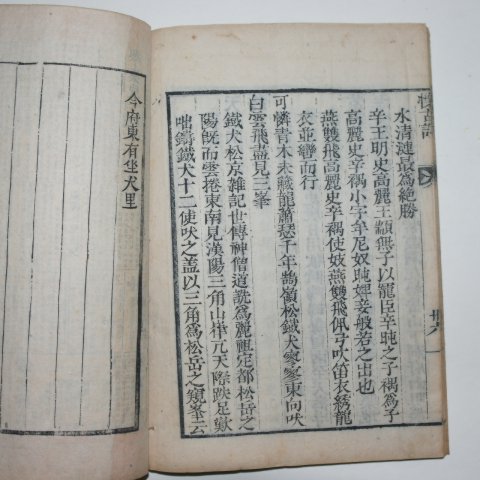 水清漣最為絶勝
辛王明史高麗王顓無子以寵臣辛旽之子禑為子
高麗史辛禑小字牟尼奴旽婢妾般若之出也
燕雙飛高麗史辛禑使妓燕雙飛佩弓吹笛衣綉龍
衣並轡而行
可憐青木未藏龍蕭瑟千年鵠嶺松鐵犬寥寥東向吠
白雲飛盡見三峯
鐵犬松京雜記世傳神僧道詵為麗祖定都松岳之
陽既而雲捲東南見漢陽三角山祥兀天際跌足歎
咄鑄鐵犬十二使吠之盖以三角為松岳之窺峯云
今府東有坐犬里